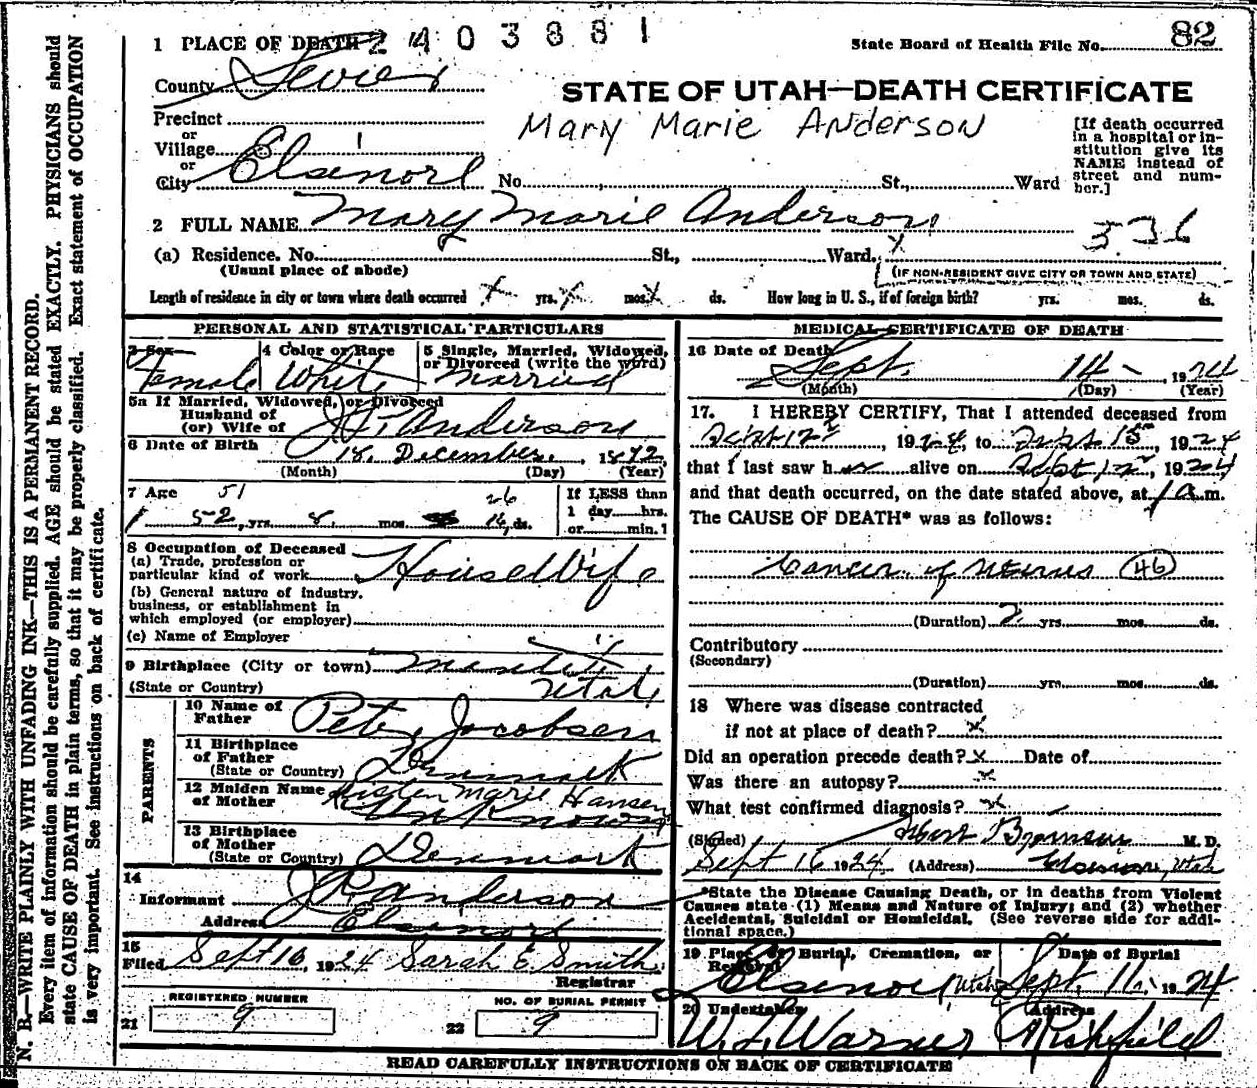 1 PLACE OF DEATH 2403881
State Board of Health File No. 82
County Sevier
STATE OF UTAH—DEATH CERTIFICATE
Mary Marie Anderson
Precinct
or
Village
or
City Elsinore No. St., Ward
[If death occurred
in a hospital or in-
stitution give its
NAME instead of
street and num-
ber.]
2 FULL NAME Mary Marie Anderson
336
(a) Residence. No. St., Ward. x
(Usual place of abode)
(IF NON-RESIDENT GIVE CITY OR TOWN AND STATE)
Length of residence in city or town where death occurred x yrs. x mos. x ds. How long in U. S., if of foreign birth? yrs. mos. ds.
PERSONAL AND STATISTICAL PARTICULARS
3 Sex 4 Color or Race 5 Single, Married, Widowed,
or Divorced (write the word)
Female White Married
5a If Married, Widowed, or Divorced
Husband of
(or) Wife of Anderson
6 Date of Birth 18. December. 1872
(Month) (Day) (Year)
7 Age 51 26
52 yrs. 8 mos. 16 ds.
If LESS than
1 day hrs.
or min. 1
8 Occupation of Deceased
(a) Trade, profession or
particular kind of work Housewife
(b) General nature of industry,
business, or establishment in
which employed (or employer)
(c) Name of Employer
9 Birthplace (City or town)
(State or Country) Utah
PARENTS
10 Name of
Father Peter Jacobsen
11 Birthplace
of Father
(State or Country) Denmark
12 Maiden Name Kisten Marie Hansen
of Mother Unknown
13 Birthplace
of Mother
(State or Country) Denmark
14
Informant Anderson
Address Elsinore
15
Filed Sept 16, 1924 Sarah E Smith
Registrar
REGISTERED NUMBER
21 9
NO. OF BURIAL PERMIT
22 9
MEDICAL CERTIFICATE OF DEATH
16 Date of Death Sept. 14 - , 1924
(Month) (Day) (Year)
17. I HEREBY CERTIFY, That I attended deceased from
Sept 12, 1924, to Sept. 15, 1924
that I last saw her alive on Sept 12, 1924
and that death occurred, on the date stated above, at 1 a.m.
The CAUSE OF DEATH* was as follows:
Cancer of Uterus (46)
(Duration) 2 yrs. mos. ds.
Contributory
(Secondary)
(Duration) yrs. mos. ds.
18 Where was disease contracted
if not at place of death? x
Did an operation precede death? x Date of
Was there an autopsy? x
What test confirmed diagnosis? x
(Signed) M. D.
Sept 16 1924 (Address) Elsinore, Utah
*State the Disease Causing Death, or in deaths from Violent
Causes state (1) Means and Nature of Injury; and (2) whether
Accidental, Suicidal or Homicidal. (See reverse side for addi-
tional space.)
19 Place of Burial, Cremation, or
Removal
Date of Burial
Elsinore Utah Sept. 16. 1924
20 Undertaker Address
W. L. Warner Richfield
READ CAREFULLY INSTRUCTIONS ON BACK OF CERTIFICATE
N. B.—WRITE PLAINLY WITH UNFADING INK—THIS IS A PERMANENT RECORD.
Every item of information should be carefully supplied. AGE should be stated EXACTLY. PHYSICIANS should
state CAUSE OF DEATH in plain terms, so that it may be properly classified. Exact statement of OCCUPATION
is very important. See instructions on back of certificate.